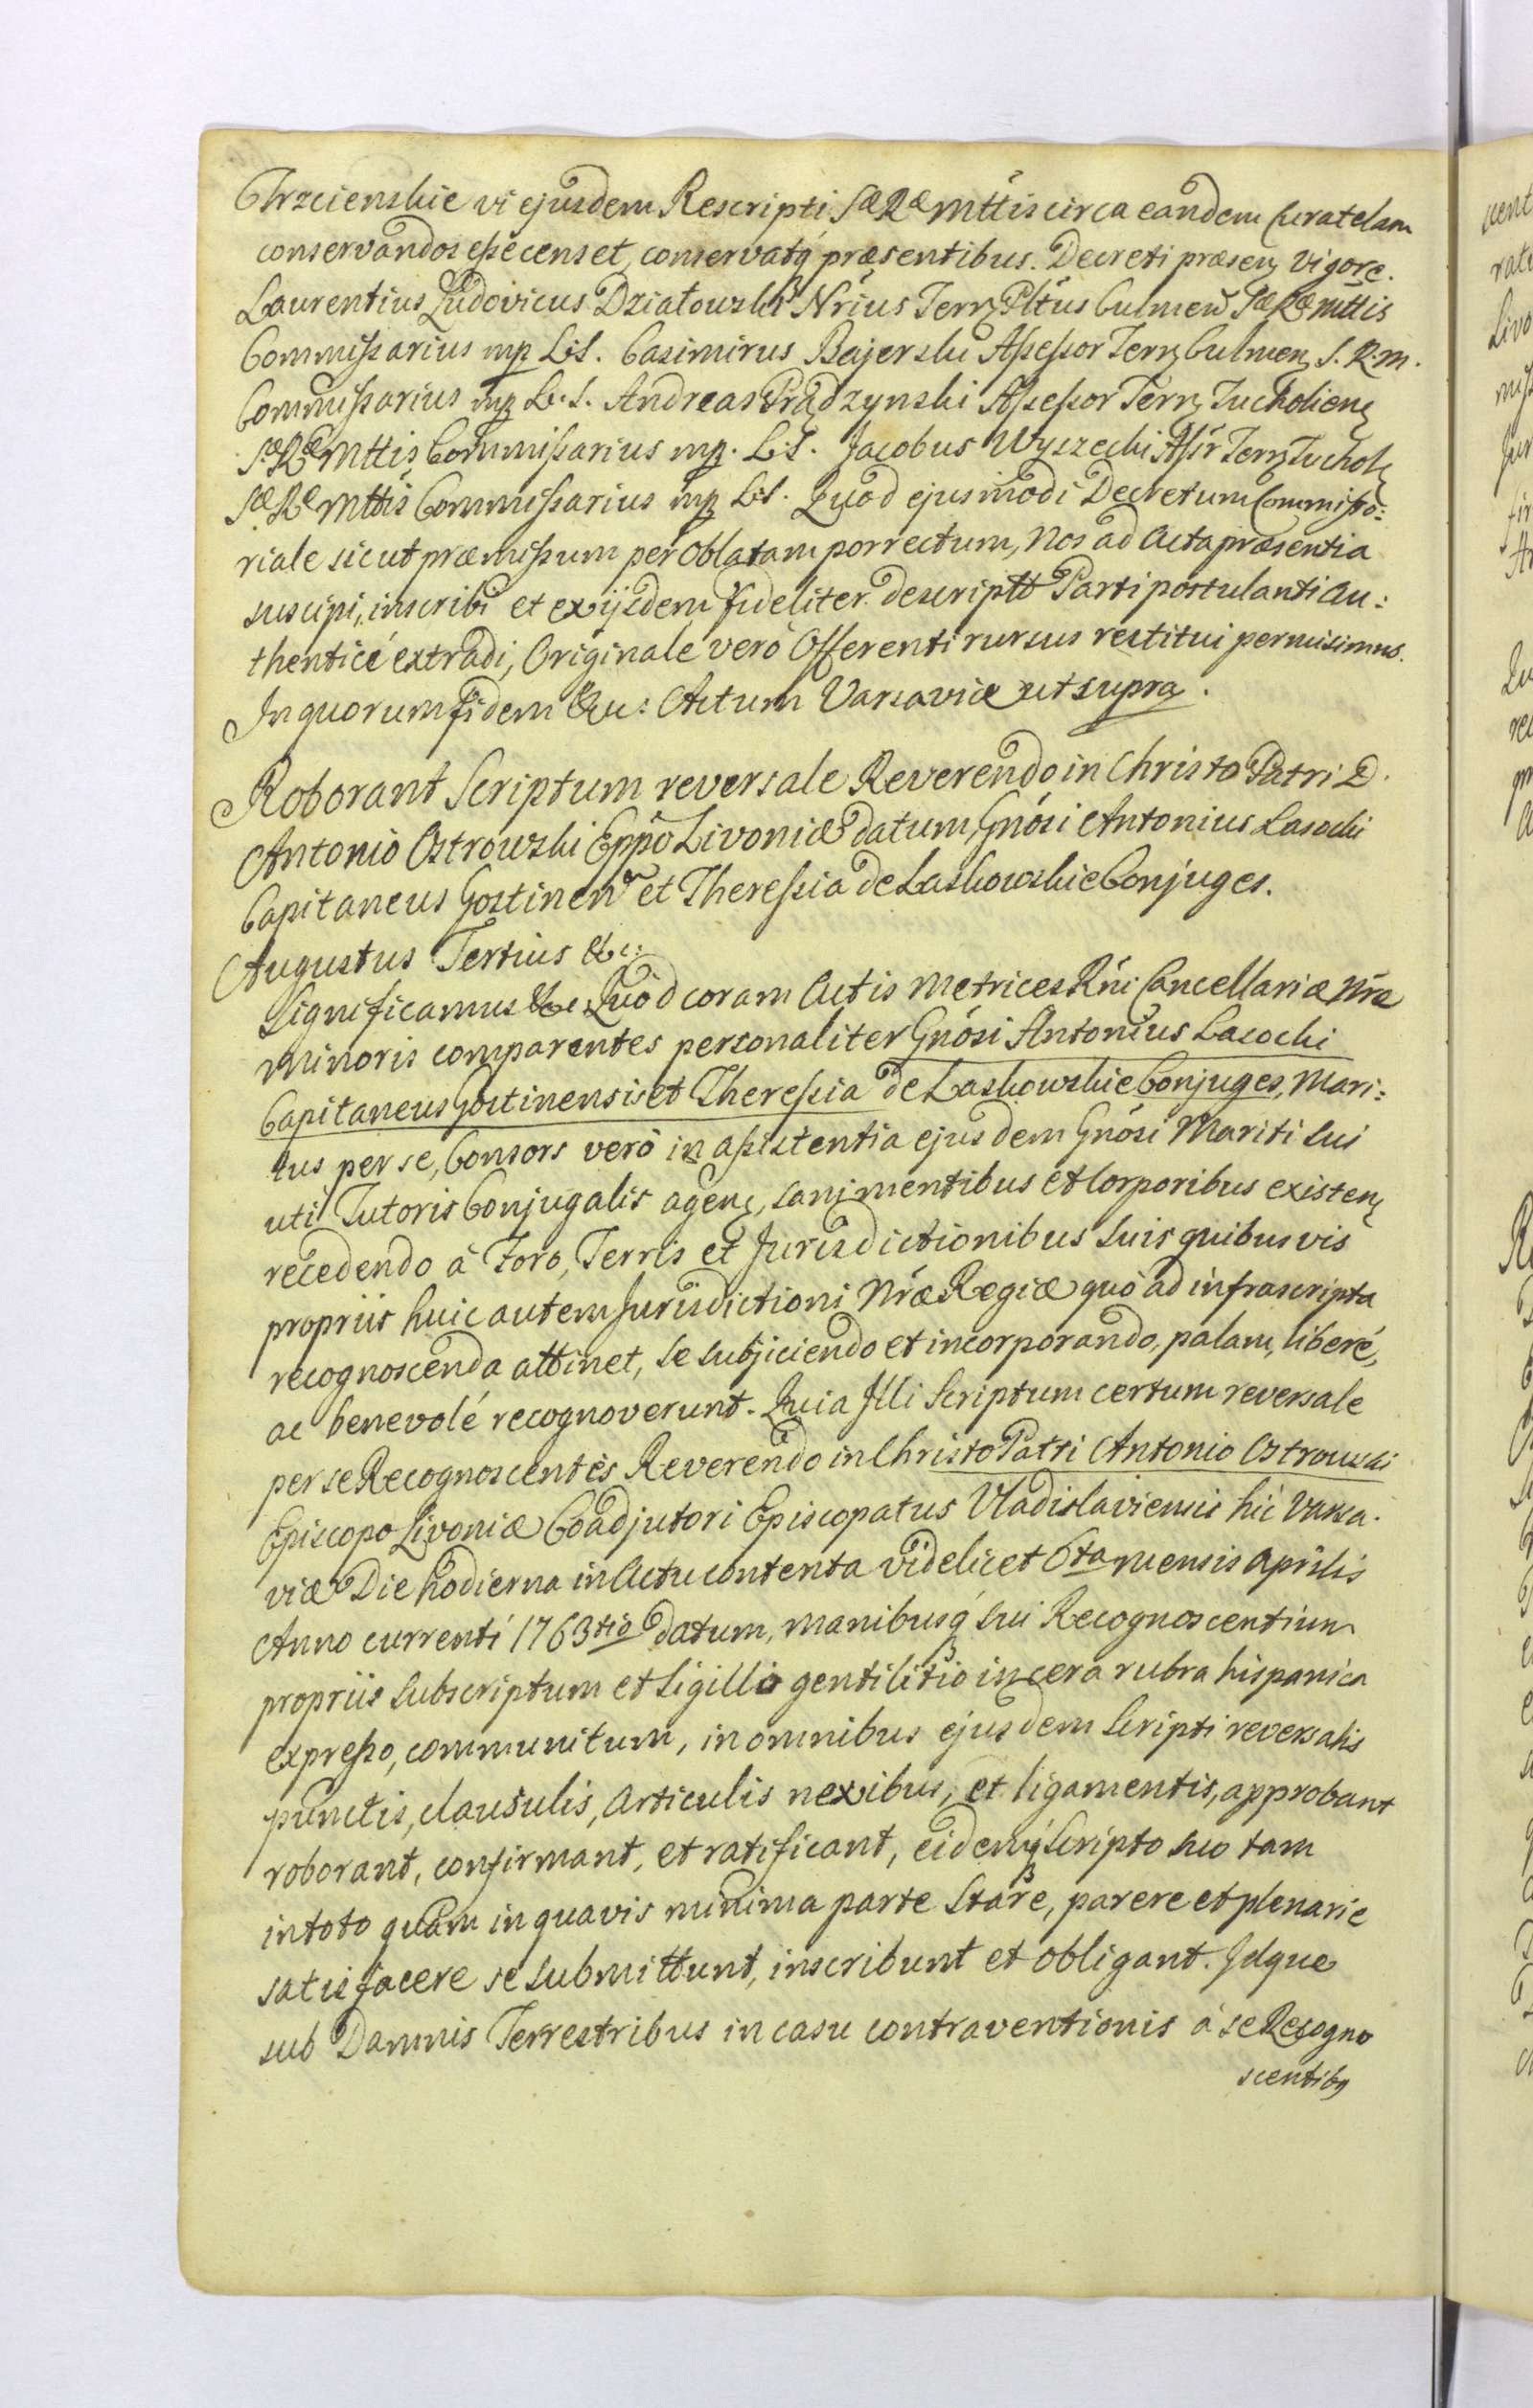 Chrzcienskie vi ejusdem Rescripti Sæ Ræ Mttis circa eandem Curatelam
conservandos esse censet, conservatq́ præsentibus. Decreti præsenꝫ vigore.
Laurentius Ludovicus Działowski Nr̃ius Terrꝫ Pltus Culmen̄ Sæ Ræ Mttis
Commissarius mp L.S. Casimirus Bajerski Assessor Terrꝫ Culmenꝫ S. R. M.
Commissarius mp L.S. Andreas Prądzynski Assessor Terrꝫ Tucholienꝫ
Sæ Ræ Mttis Commissarius mp. L.S. Jacobus Wyczechi Assr Terrꝫ Tucholꝫ
Sæ Ræ Mttis Commissarius mp L.S. Quod ejusmodi Decretum Commisso:
riale sicut præmissum per Oblatam porrectum, Nos ad Acta præsentia
suscipi, inscribi et ex ijsdem fideliter descriptt Parti postulanti au:
thenticé extradi, Originale veró Offerenti rursus restitui permisimus.
In quorum fidem &c: Actum Varsaviæ ut supra.
Roborant Scriptum reversale Reverendo in Christo Patri D.
Antonio Ostrowski Eppo Livoniæ datum, Gnósi Antonius Lasocki
Capitaneus Gostinen̄ et Theressia de Laskowskie Conjuges.
Augustus Tertius &c:
Significamus &c: Quod coram Actis Metrices Rńi Cancellariæ Nræ
Minoris comparentes personaliter Gnósi Antonius Lasocki
Capitaneus Gostinensis et Theressia de Laskowskie Conjuges, Mari:
tus per se, Consors veró in assistentia ejusdem Gnósi Mariti sui
uti Tutoris Conjugalis agenꝫ, sani mentibus et Corporibus existenꝫ
recedendo á Foro, Terris et Jurisdictionibus suis quibusvis
propriis huic autem Jurisdictioni Nræ Regiæ quó ad infrascripta
recognoscenda attinet, se subjiciendo et incorporando, palam, liberé,
ac benevolé recognoverunt. Quia Illi Scriptum certum reversale
per se Recognoscentes Reverendo in Christo Patri Antonio Ostrowski
Episcopo Livoniæ Coadjutori Episcopatus Vladislaviensis hic Varsa.
viæ Die hodierna in Actu contenta videlicet 6ta mensis Aprilis
Anno currenti 1763tio datum, manibusq́ sui Recognoscentium
propriis subscriptum et Sigillo gentilitio in cera rubra hispanica
expresso, communitum, in omnibus ejusdem Scripti reversalis
punctis, clausulis, articulis nexibus, et ligamentis, approbant
roborant, confirmant, et ratificant, eidemq́ Scripto suo tam
in toto quám in quavis minima parte stare, parere et plenarie
satisfacere se submittunt, inscribunt et obligant. Idque
sub Damnis Terrestribus in casu contraventionis á se Recogno
scentibꝫ